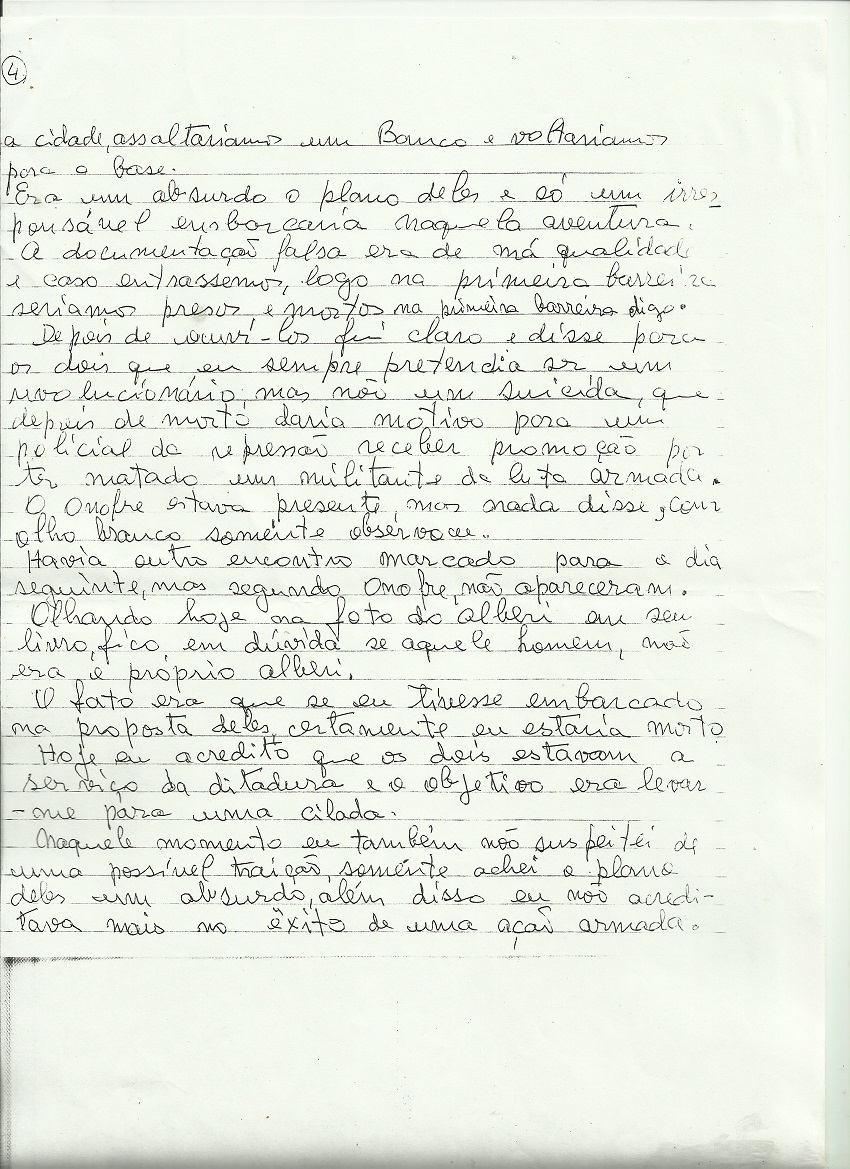 4
a cidade, assaltariamos um Banco e voltariamos
para a base.
Era um absurdo o plano deles e só um irres
ponsável embarcaria naquela aventura.
A documentação falsa era de má qualidade
e caso entrassemos, logo na primeira barreira
seriamos presos, e mortos na primeira barreira digo.
Depois de ouvi-los fui claro e disse para
os dois que eu sempre pretendia ser um
revolucionário, mas não um suicida, que
depois de morto daria motivo para um
policial da repressão receber promoção por
ter matado um militante da luta armada.
O Onofre estava presente, mas nada disse, com
olho branco somente observou.
Havia outro encontro marcado para o dia
seguinte, mas segundo Onofre, não apareceram.
Olhando hoje na foto do alberi em seu
livro, fico em dúvida se aquele homem, não
era o próprio alberi.
O fato era que se eu tivesse embarcado
na proposta deles, certamente eu estaria morto
Hoje eu acredito que os dois estavam a
serviço da ditadura e o objetivo era levar
-me para uma cilada.
Naquele momento eu também não suspeitei de
uma possível traição, somente achei o plano
deles um absurdo, além disso eu não acredi-
tava mais no êxito de uma ação armada.